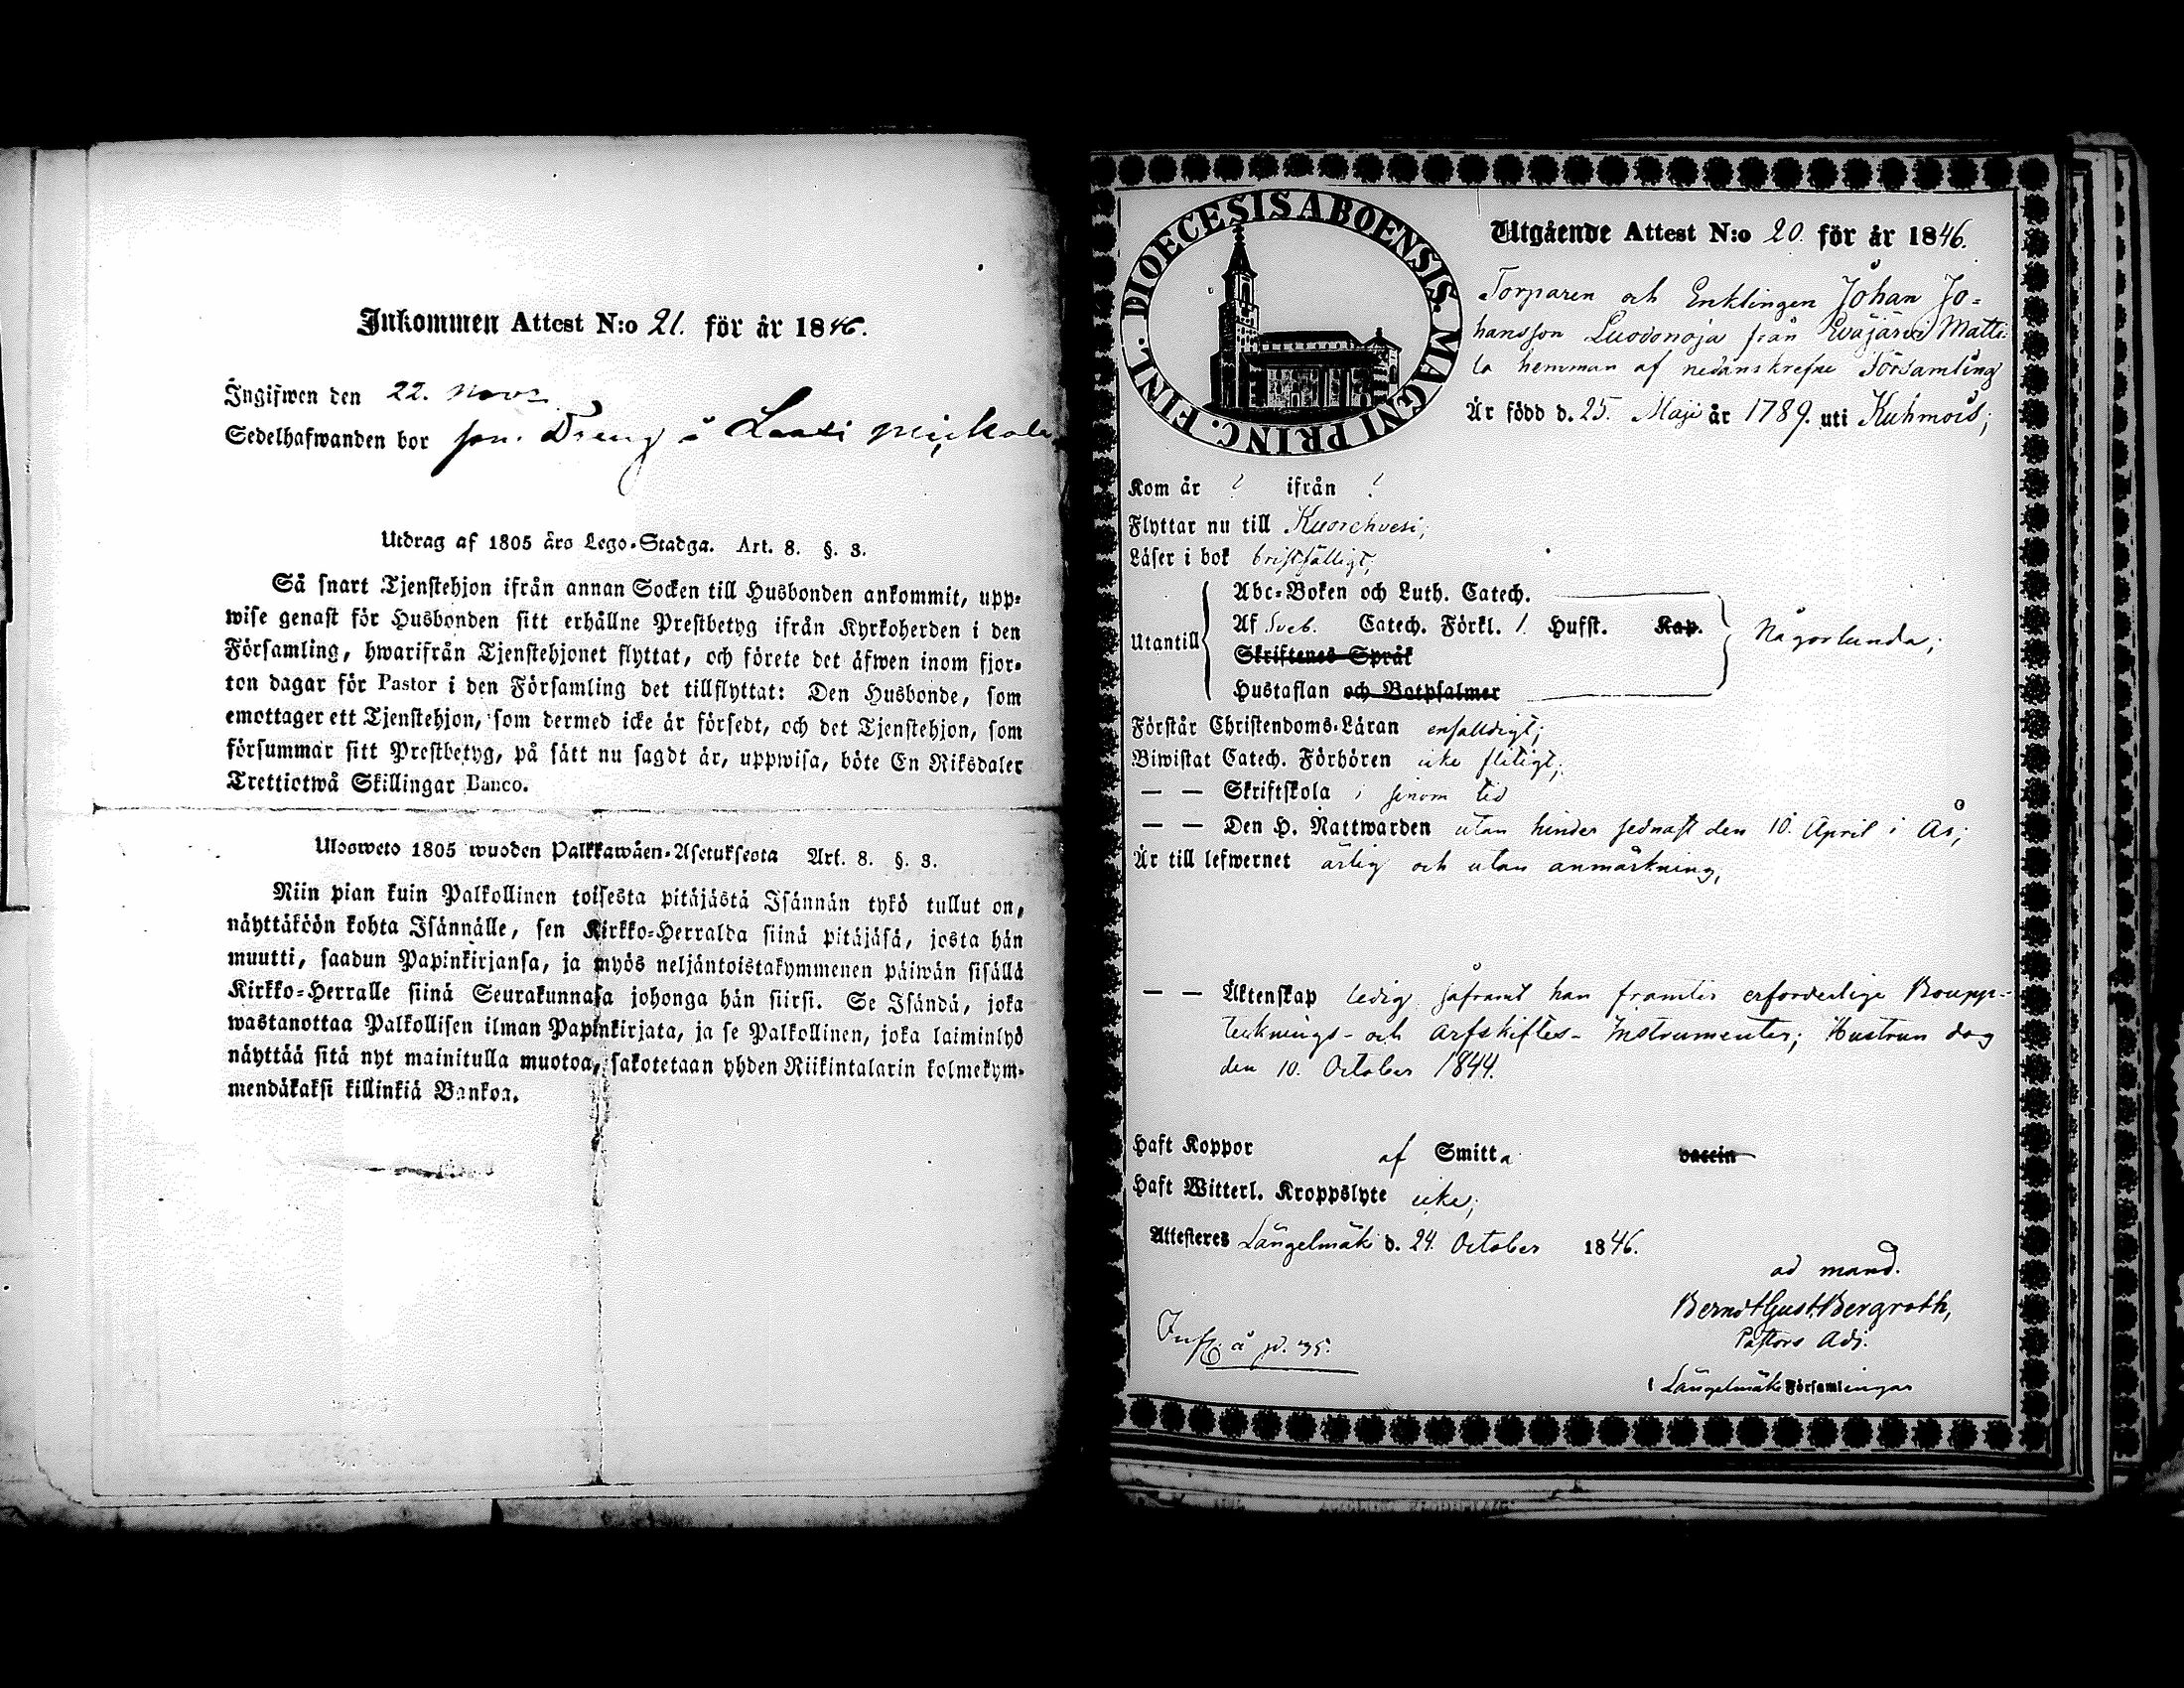 Inkommen Attest N:o 21. för år 1846.
Ingifwen den 22. Novr.
Sedelhafwanden bor som Dreng å
Utdrag af 1805 års Lego-Stadga. Art. 8. §. 3.
Så snart Tjenstehjon ifrån annan Socken till Husbonden ankommit, upp-
wise genast för Husbonden sitt erhållne Prestbetyg ifrån Kyrkoherden i den
Församling, hwarifrån Tjenstehjonet flyttat, och förete det äfwen inom fjor-
ton dagar för Pastor i den Församling det tillflyttat: Den Husbonde, som
emottager ett Tjenstehjon, som dermed icke är försedt, och det Tjenstehjon, som
försummar sitt Prestbetyg, på sätt nu sagdt är, uppwisa, böte En Riksdaler
Trettiotwå Skillingar Banco.
Ulosweto 1805 wuoden Palkkawäen-Asetuksesta Art. 8. §. 3.
Niin pian kuin Palkollinen toisesta pitäjästä Isännän tykö tullut on,
näyttäköön kohta Isännälle, sen Kirkko-Herralda siinä pitäjäsä, josta hän
muutti, saadun Papinkirjansa, ja myös neljäntoistakymmenen päiwän sisällä
Kirkko-Herralle siinä Seurakunnasa johonga hän siirsi. Se Isändä, joka
wastanottaa Palkollisen ilman Papinkirjata, ja se Palkollinen, joka laiminlyö
näyttää sitä nyt mainitulla muotoa, sakotetaan yhden Riikintalarin kolmekym-
mendäkaksi killinkiä Bankoa.
DIOECESIS ABOENSIS. MAGNI PRINC. FINL.
Utgående Attest N:o 20. för år 1846.
Torparen och Enklingen Johan Jo=
hansson Luodonoja från Eväjärvi Matti=
la hemman af nedanskrefne Församling
Är född d. 25. Maji år 1789. uti Kuhmois;
Kom år ? ifrån ?
Flyttar nu till Kuorehvesi;
Läser i bok bristfälligt;
Utantill
Abc-Boken och Luth. Catech.
Af Sveb. Catech. Förkl. 1. Husst. Kap.
Skriftenes Språk
Hustaflan och Botpsalmer
Någorlunda;
Förstår Christendoms-Läran enfalldigt;
Biwistat Catech. Förhören icke flitigt;
— — Skriftskola i sinom tid
— — Den H. Nattwarden utan hinder sednast den 10. April i År;
Är till lefwernet ärlig och utan anmärkning,
— — Äktenskap ledig såframt han framter erforderlige Boupp=
tecknings- och Arfskiftes- Instrumenter; Hustrun dog
den 10. October 1844.
Haft Koppor af Smitta vaccin
Haft Witterl. Kroppslyte icke;
Attesteres Längelmäki d. 24. October 1846.
ad mand.
Berndt Gust. Bergroth,
Pastors Adj.
i Längelmäki Församlingar
Infl. å p. 35.